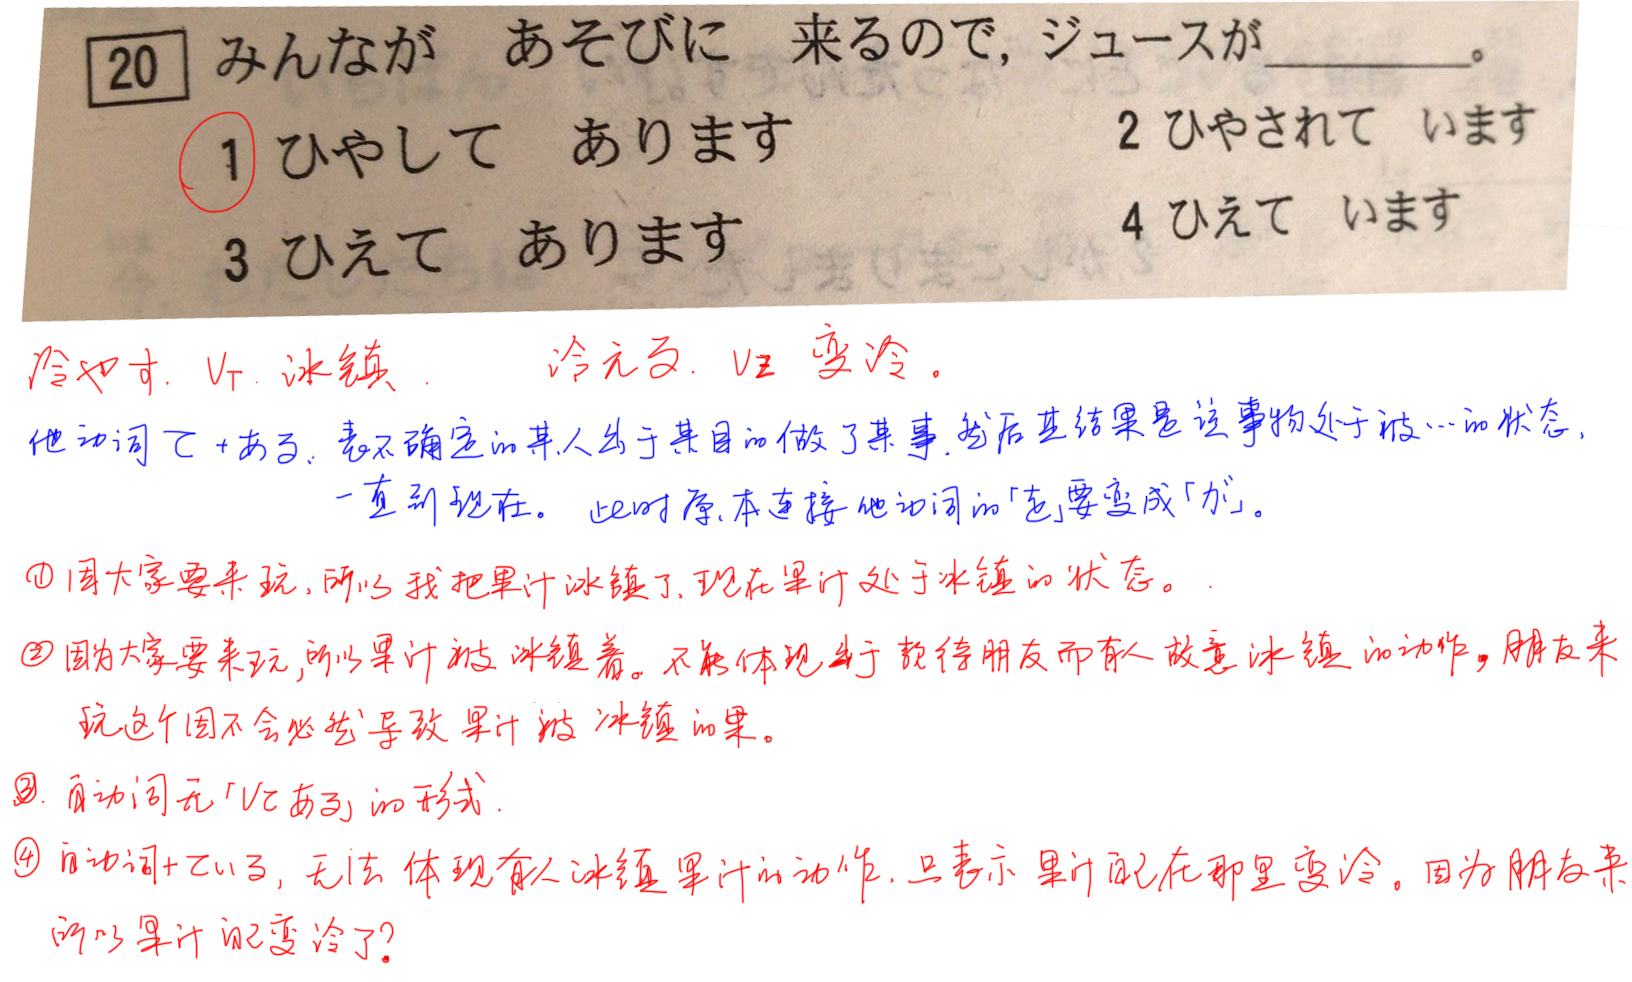 20 みんなが あそびに 来るので, ジュースが______。
1 ひやして あります 2 ひやされて います
3 ひえて あります 4 ひえて います
冷やす. VT. 冰镇. 冷える. VI 变冷。
他动词て+ある. 表不确定的某人出于某目的做了某事.然后其结果是该事物处于被…的状态,
一直到现在。 此时原本连接他动词的「を」要变成「が」。
①因大家要来玩,所以我把果汁冰镇了,现在果汁处于冰镇的状态。.
②因为大家要来玩,所以果汁被冰镇着。不能体现出于款待朋友而有人故意冰镇的动作。朋友来
玩这个因不会必然导致果汁被冰镇的果。
③. 自动词无「Vてある」的形式.
④自动词+ている, 无法体现有人冰镇果汁的动作.只表示果汁自己在那里变冷。因为朋友来
所以果汁自己变冷了?